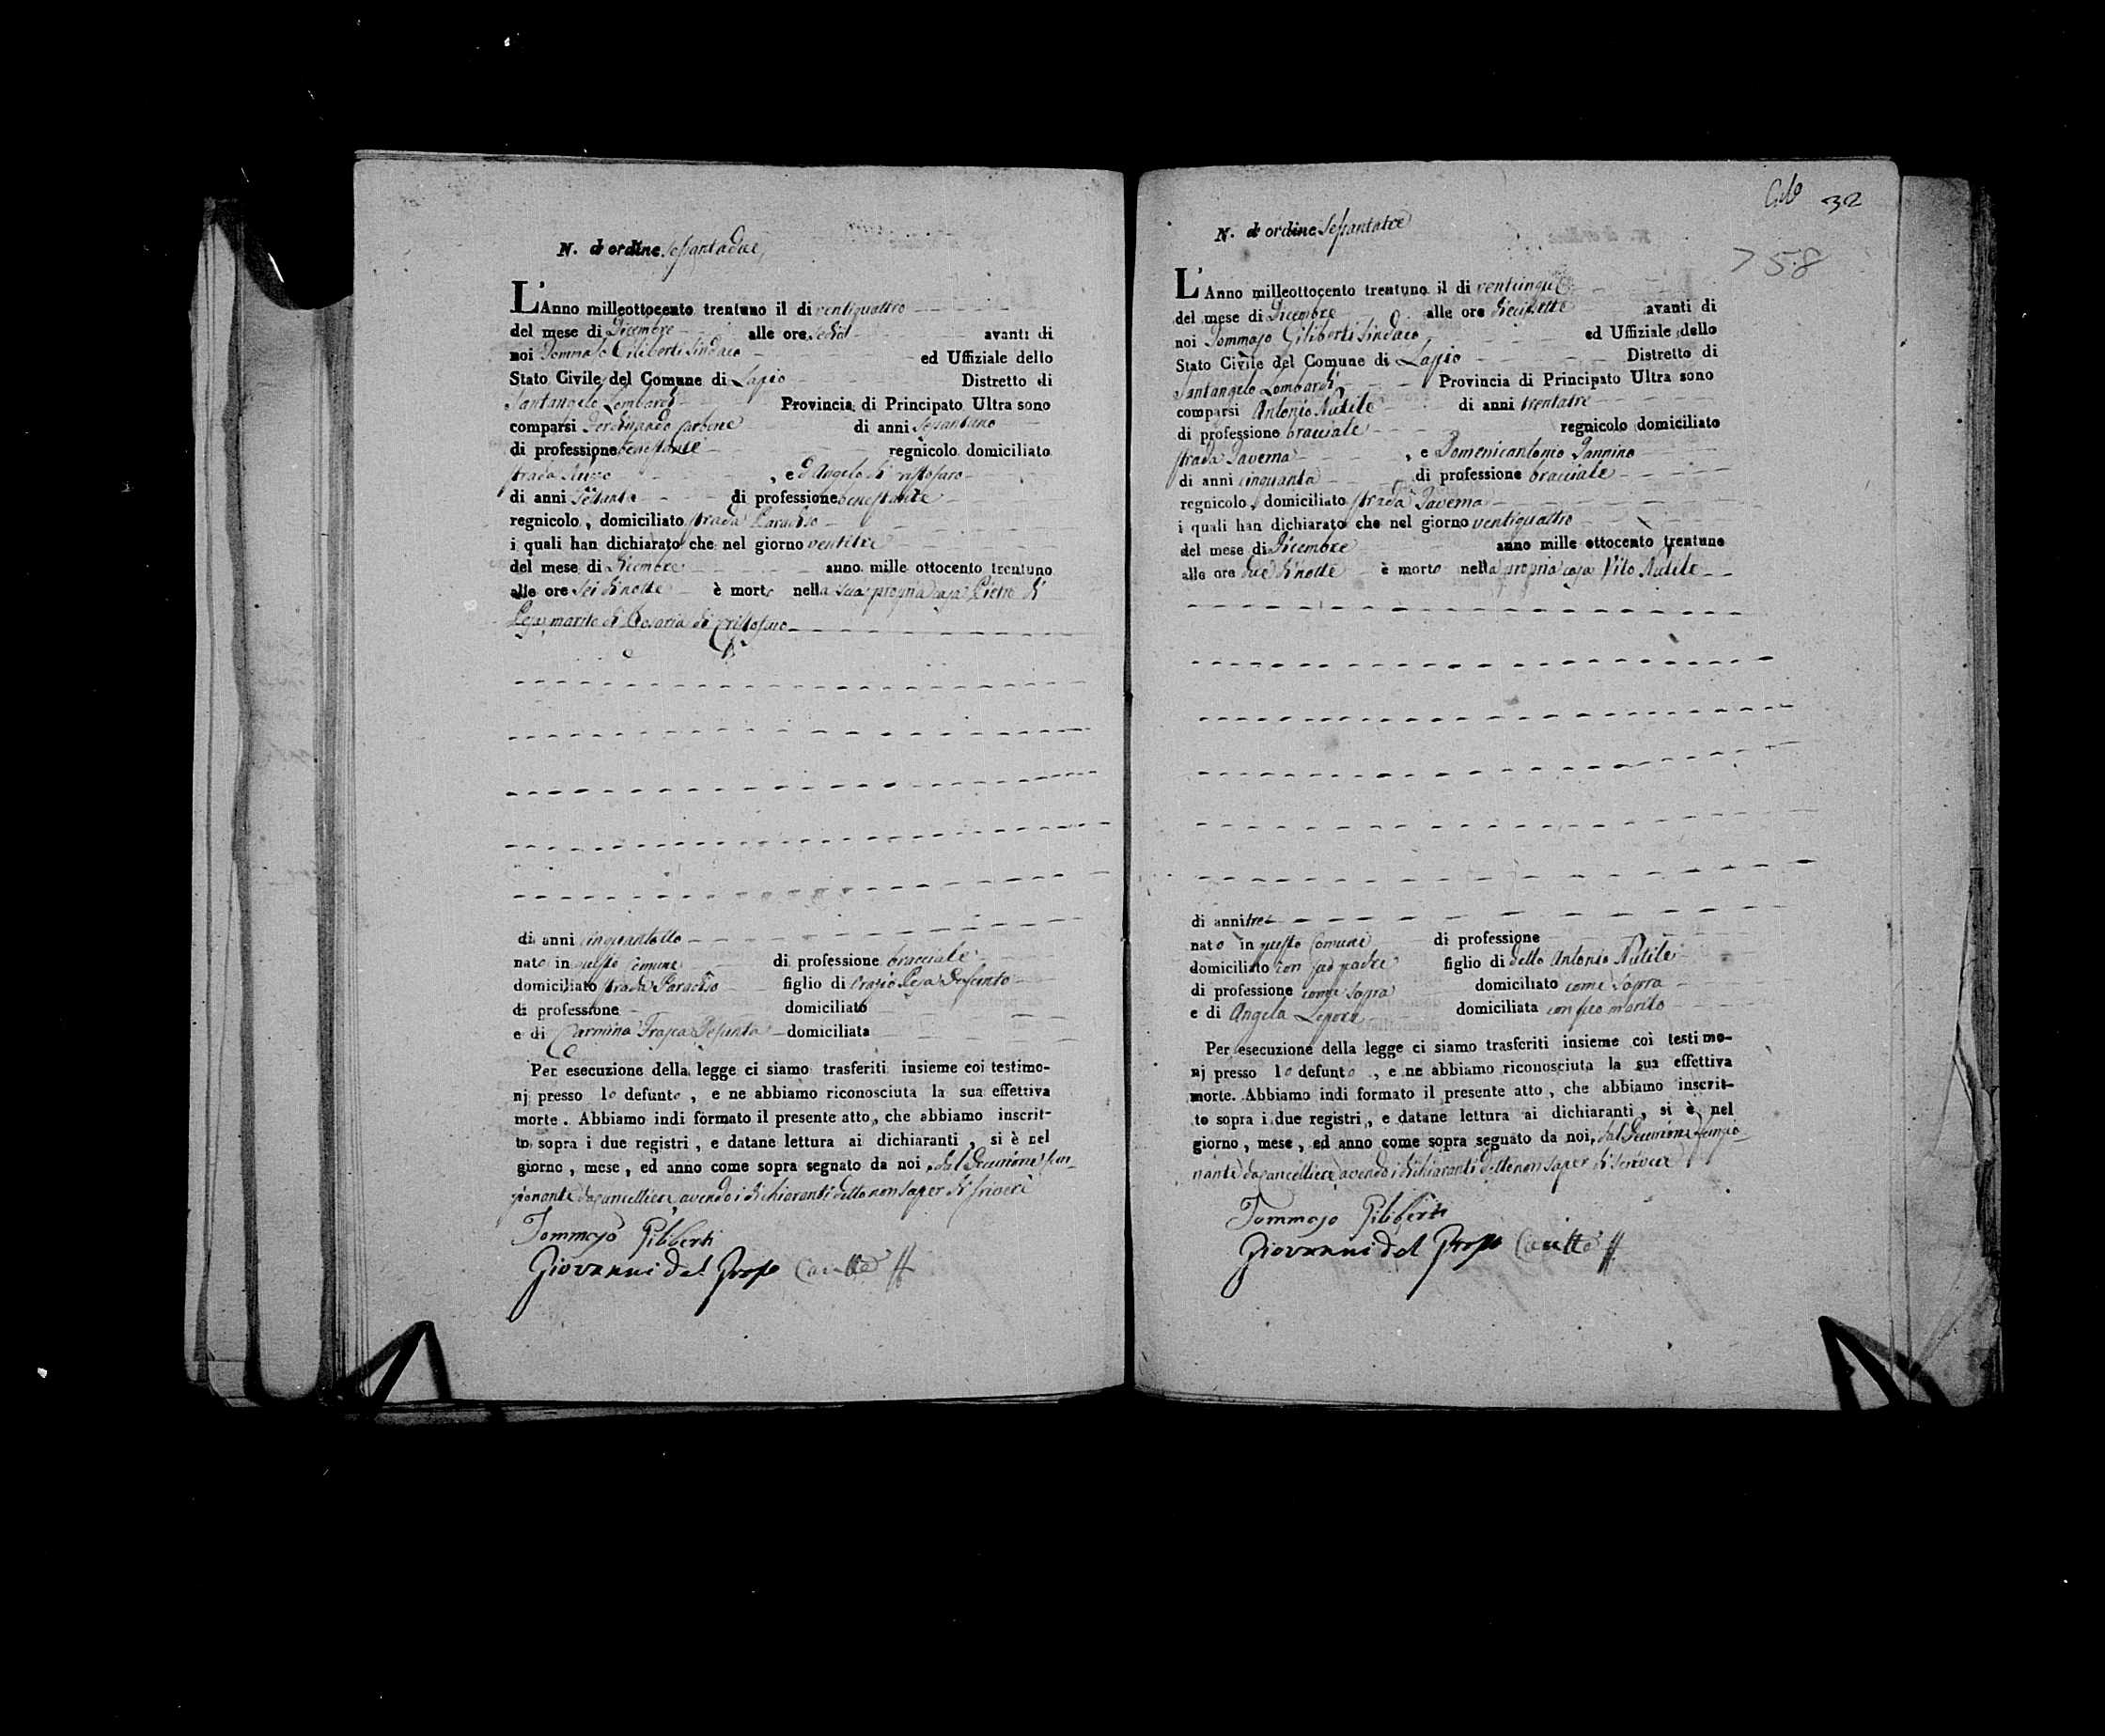 N. d'ordine sessantadue
L'Anno milleottocento trentuno il di ventiquattro
del mese di Dicembre alle ore sedici avanti di
noi Tommaso Giliberti Sindaco ed Uffiziale dello
Stato Civile del Comune di Lapio Distretto di
Santangelo Lombardi Provincia di Principato Ultra sono
comparsi Ferdinando Carbone di anni sessantuno
di professione benestante regnicolo domiciliato
strada , e d'Angelo di Cristofaro
di anni settanta di professione benestante
regnicolo, domiciliato strada Paradiso
i quali han dichiarato che nel giorno ventitre
del mese di Dicembre anno mille ottocento trentuno
alle ore sei di notte è morto nella sua propria casa Pietro di
Pesa marito di Cesaria di Cristofaro
di anni cinquantotto
nato in questo Comune di professione bracciale
domiciliato strada Paradiso figlio di Orazio Pesa Defunto
di professione domiciliato
e di Carmina Frasca Defunta domiciliata
Per esecuzione della legge ci siamo trasferiti insieme coi testimo-
nj presso lo defunto, e ne abbiamo riconosciuta la sua effettiva
morte. Abbiamo indi formato il presente atto, che abbiamo inscrit-
to sopra i due registri, e datane lettura ai dichiaranti, si è nel
giorno, mese, ed anno come sopra segnato da noi, dal Decurione fun-
zionante da Cancelliere avendo i dichiaranti detto non saper di scrivere
Tommaso Giliberti
Giovanni Del Grosso
Cib 32
758
N. d'ordine sessantatre
L'Anno milleottocento trentuno il di venticinque
del mese di Dicembre alle ore diecisette avanti di
noi Tommaso Giliberti Sindaco ed Uffiziale dello
Stato Civile del Comune di Lapio Distretto di
Santangelo Lombardi Provincia di Principato Ultra sono
comparsi Antonio Nutile di anni trentatre
di professione bracciale regnicolo domiciliato
strada Taverna , e Domenicantonio Iannino
di anni cinquanta , di professione bracciale
regnicolo, domiciliato strada Taverna
i quali han dichiarato che nel giorno ventiquattro
del mese di Dicembre anno mille ottocento trentuno
alle ore due di notte è morto nella propria casa Vito Nutile
di anni tre
nato in questo Comune di professione
domiciliato con suo padre figlio di detto Antonio Nutile
di professione come sopra domiciliato come sopra
e di Angela Lepore domiciliata con suo marito
Per esecuzione della legge ci siamo trasferiti insieme coi testimo-
nj presso lo defunto, e ne abbiamo riconosciuta la sua effettiva
morte. Abbiamo indi formato il presente atto, che abbiamo inscrit-
to sopra i due registri, e datane lettura ai dichiaranti, si è nel
giorno, mese, ed anno come sopra segnato da noi, dal Decurione funzio-
nante da Cancelliere avendo i dichiaranti detto non saper di scrivere
Tommaso Giliberti
Giovanni Del Grosso